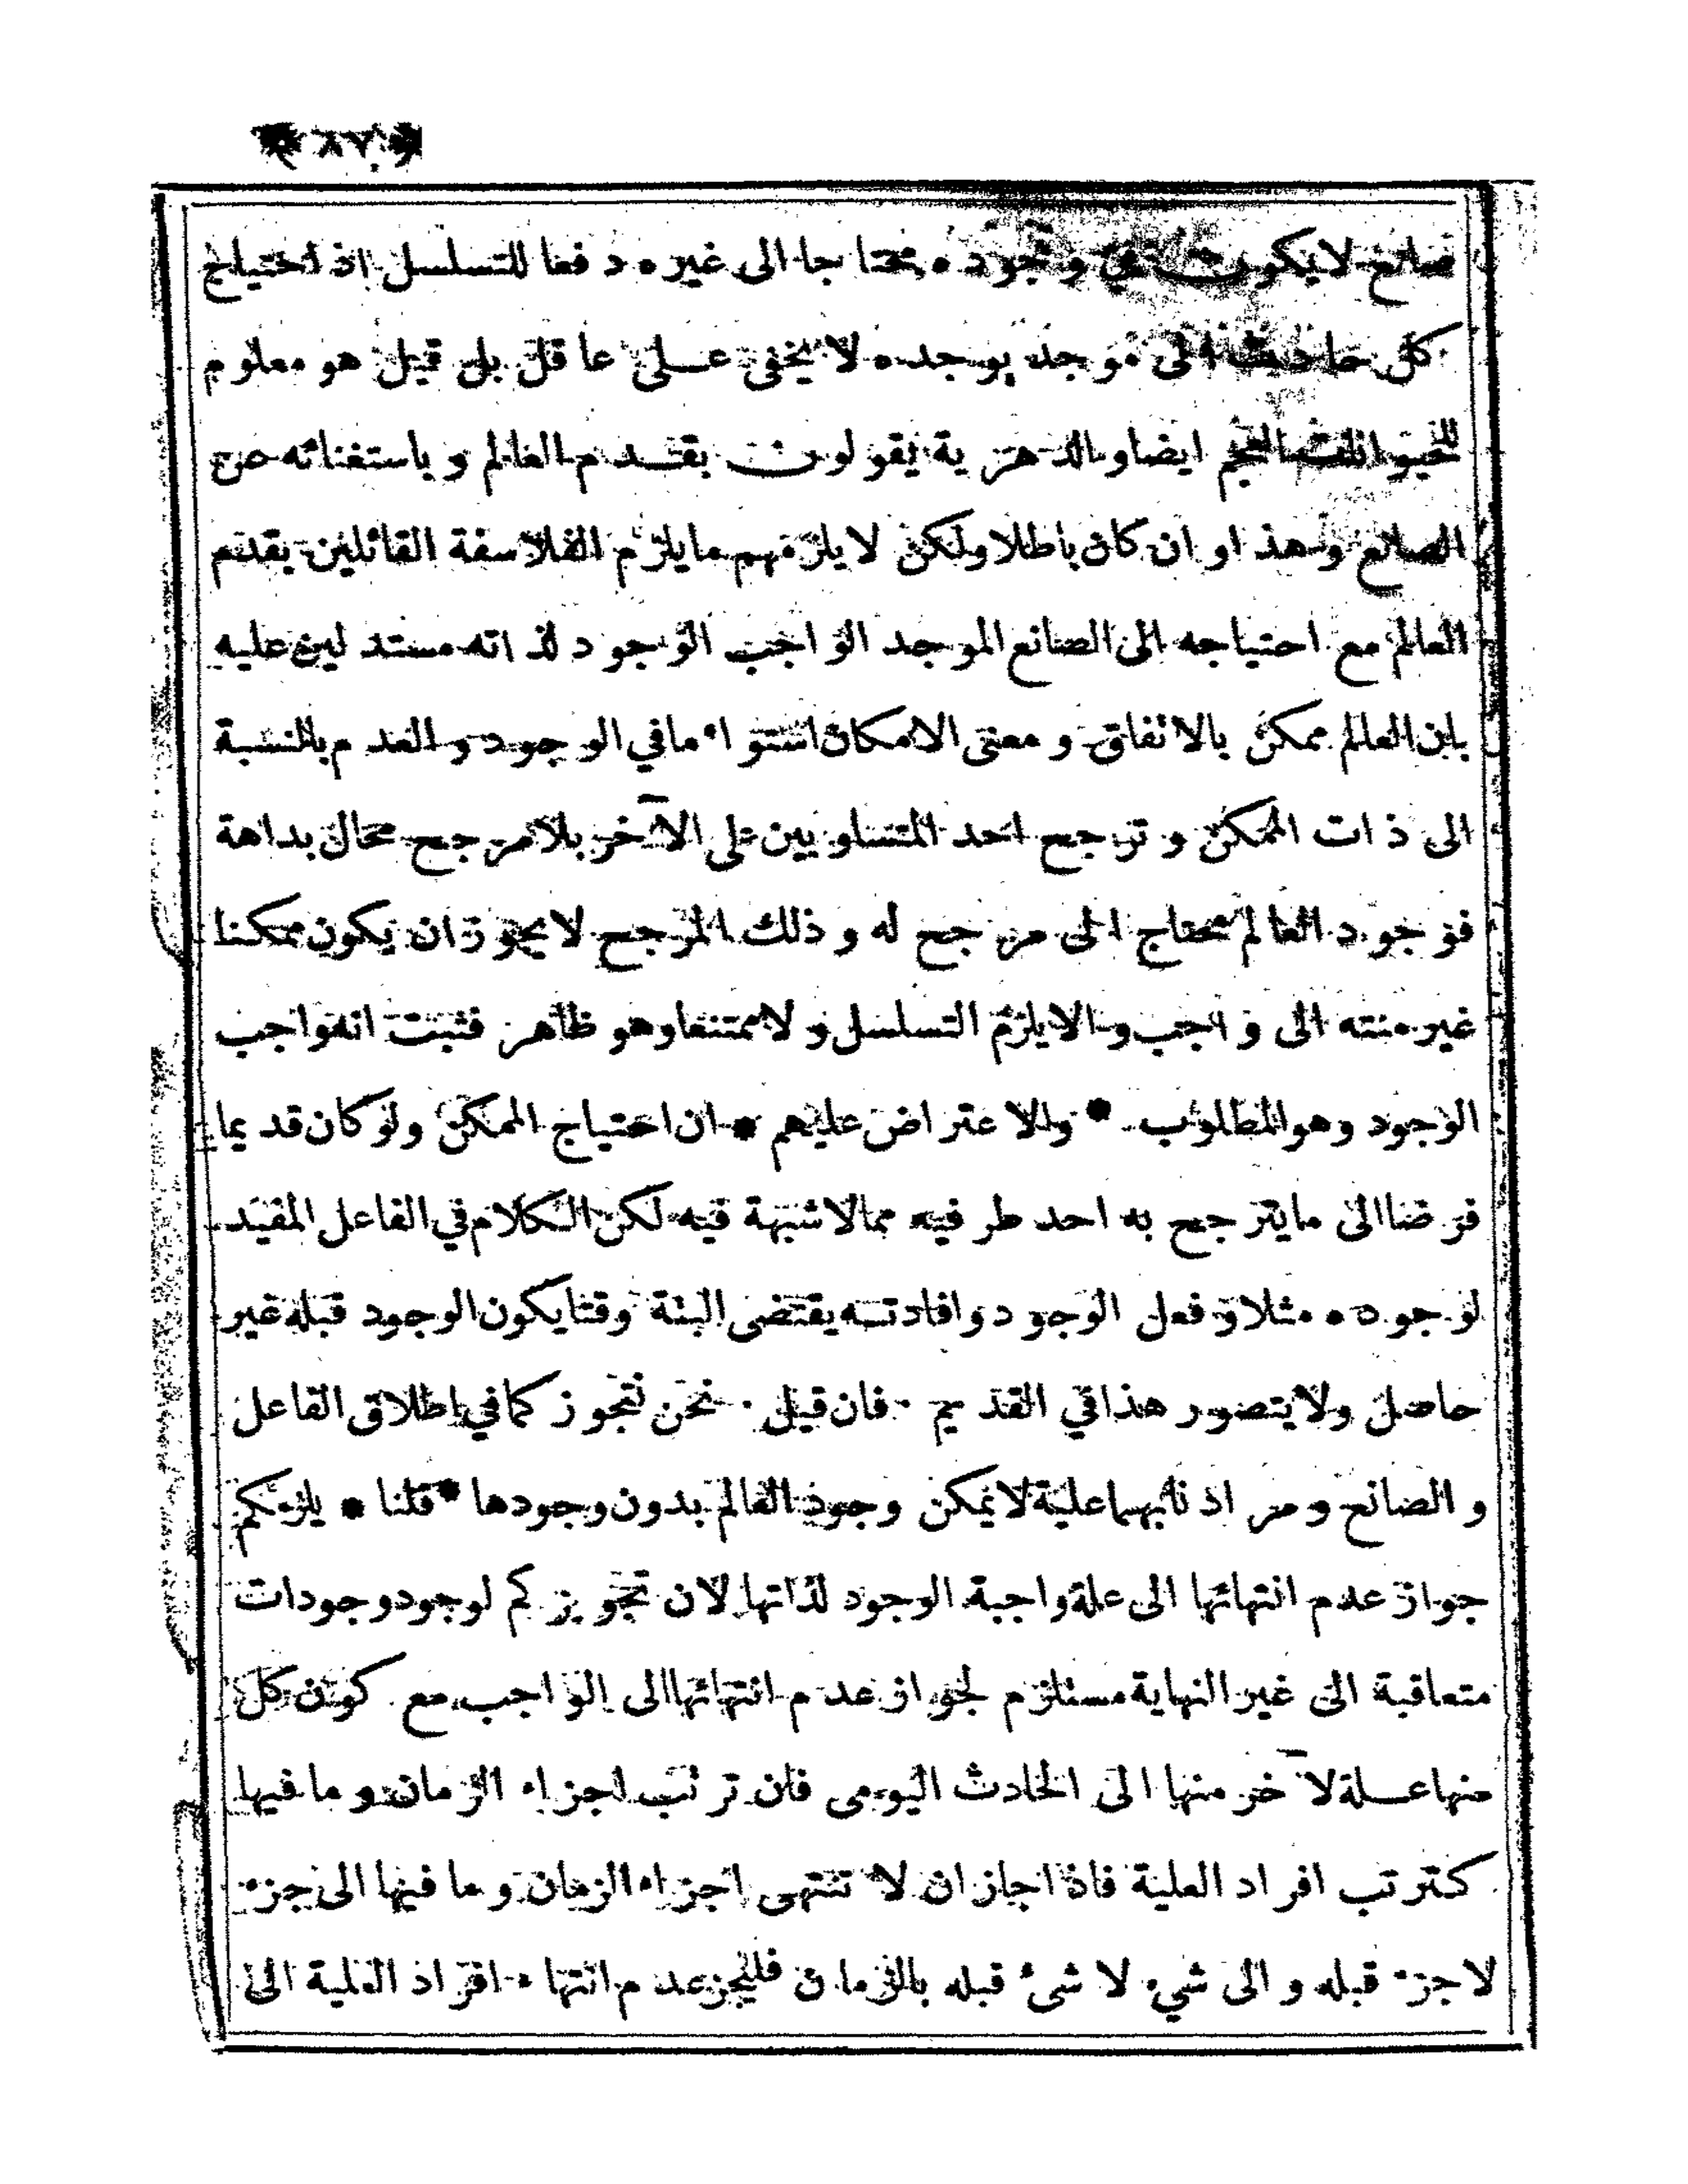 ﴿ ٨٧ ﴾
صانع لايكون في وجوده محتاجا الى غيره دفعا للتسلسل اذ احتياج
كل حادث الى موجد يوجده لا يخفى على عاقل بل قيل هو معلوم
للحيوانات العجم ايضا والدهرية يقولون بقدم العالم وباستغنائه عن
الصانع وهذا وان كان باطلا ولكن لا يلزمهم ما يلزم الفلاسفة القائلين بقدم
العالم مع احتياجه الى الصانع الموجد الواجب الوجود لذاته مستدلين عليه
بان العالم ممكن بالاتفاق ومعنى الامكان استواء مافي الوجود والعدم بالنسبة
الى ذات الممكن وترجح احد المتساويين على الآخر بلا مرجح محال بداهة
فوجود العالم محتاج الى مرجح له وذلك المرجح لا يجوز ان يكون ممكنا
غير منته الى واجب والا يلزم التسلسل ولا ممتنعا وهو ظاهر فثبت انه واجب
الوجود وهو المطلوب * والاعتراض عليهم * ان احتياج الممكن ولو كان قديما
فرضا الى مايترجح به احد طرفيه مما لا شبهة فيه لكن الكلام في الفاعل المفيد
لوجوده مثلا وفعل الوجود وافادته يقتضى البتة وقتا يكون الوجود قبله غير
حاصل ولا يتصور هذا في القديم • فان قيل • نحن نتجوز كما في اطلاق الفاعل
والصانع ومرادنا بهما علية لا يمكن وجود العالم بدون وجودها * قلنا * يلزمكم
جواز عدم انتهائها الى علة واجبة الوجود لذاتها لان تجويزكم لوجود وجودات
متعاقبة الى غير النهاية مستلزم لجواز عدم انتهائها الى الواجب مع كون كل
منها علة لآخر منها الى الحادث اليومى فان ترتب اجزاء الزمان وما فيها
كترتب افراد العلية فاذا جاز ان لا تنتهى اجزاء الزمان وما فيها الى جزء
لاجزء قبله والى شيء لا شئ قبله بالزمان فليجز عدم انتهاء افراد العلية الى